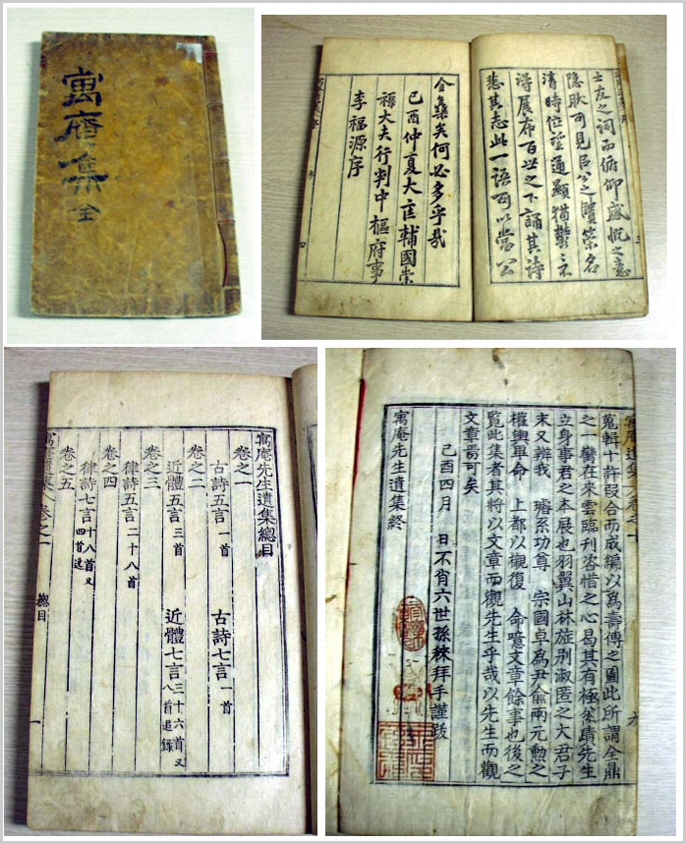 寓庵集
全
士友之詞而俯仰感慨之意
隐耿可見呂公之賸榮名
清時位望通顯猶鬱々不
得展布百世之下誦其詩
悲其志此一語可以當公
全藁矣何必多乎哉
己酉仲夏大匡輔國崇
祿大夫行判中樞府事
李福源序
寓庵先生遺集總目
卷之一
古詩五言一首
古詩七言一首
卷之二
近體五言三首
近體七言三十六首又八首追錄
卷之三
律詩五言二十八首
卷之四
律詩七言十八首又四首追
卷之五
總目
一
蒐輯十許段合而成編以爲壽傳之圖此所謂全鼎
之一臠在來雲臨刊咨惜之心曷其有極粲蹟先生
立身事君之本展也羽翼山林旌別淑慝之大君子
末又辨我 璿系功尊 宗國卓爲尹俞兩元勳之
權輿革命 上都以襯復 命噫文章餘事也後之
覽此集者其將以文章而觀先生乎哉以先生而觀
文章焉可矣
己酉四月 日不肖六世孫 拜手謹跋
寓庵先生遺集終